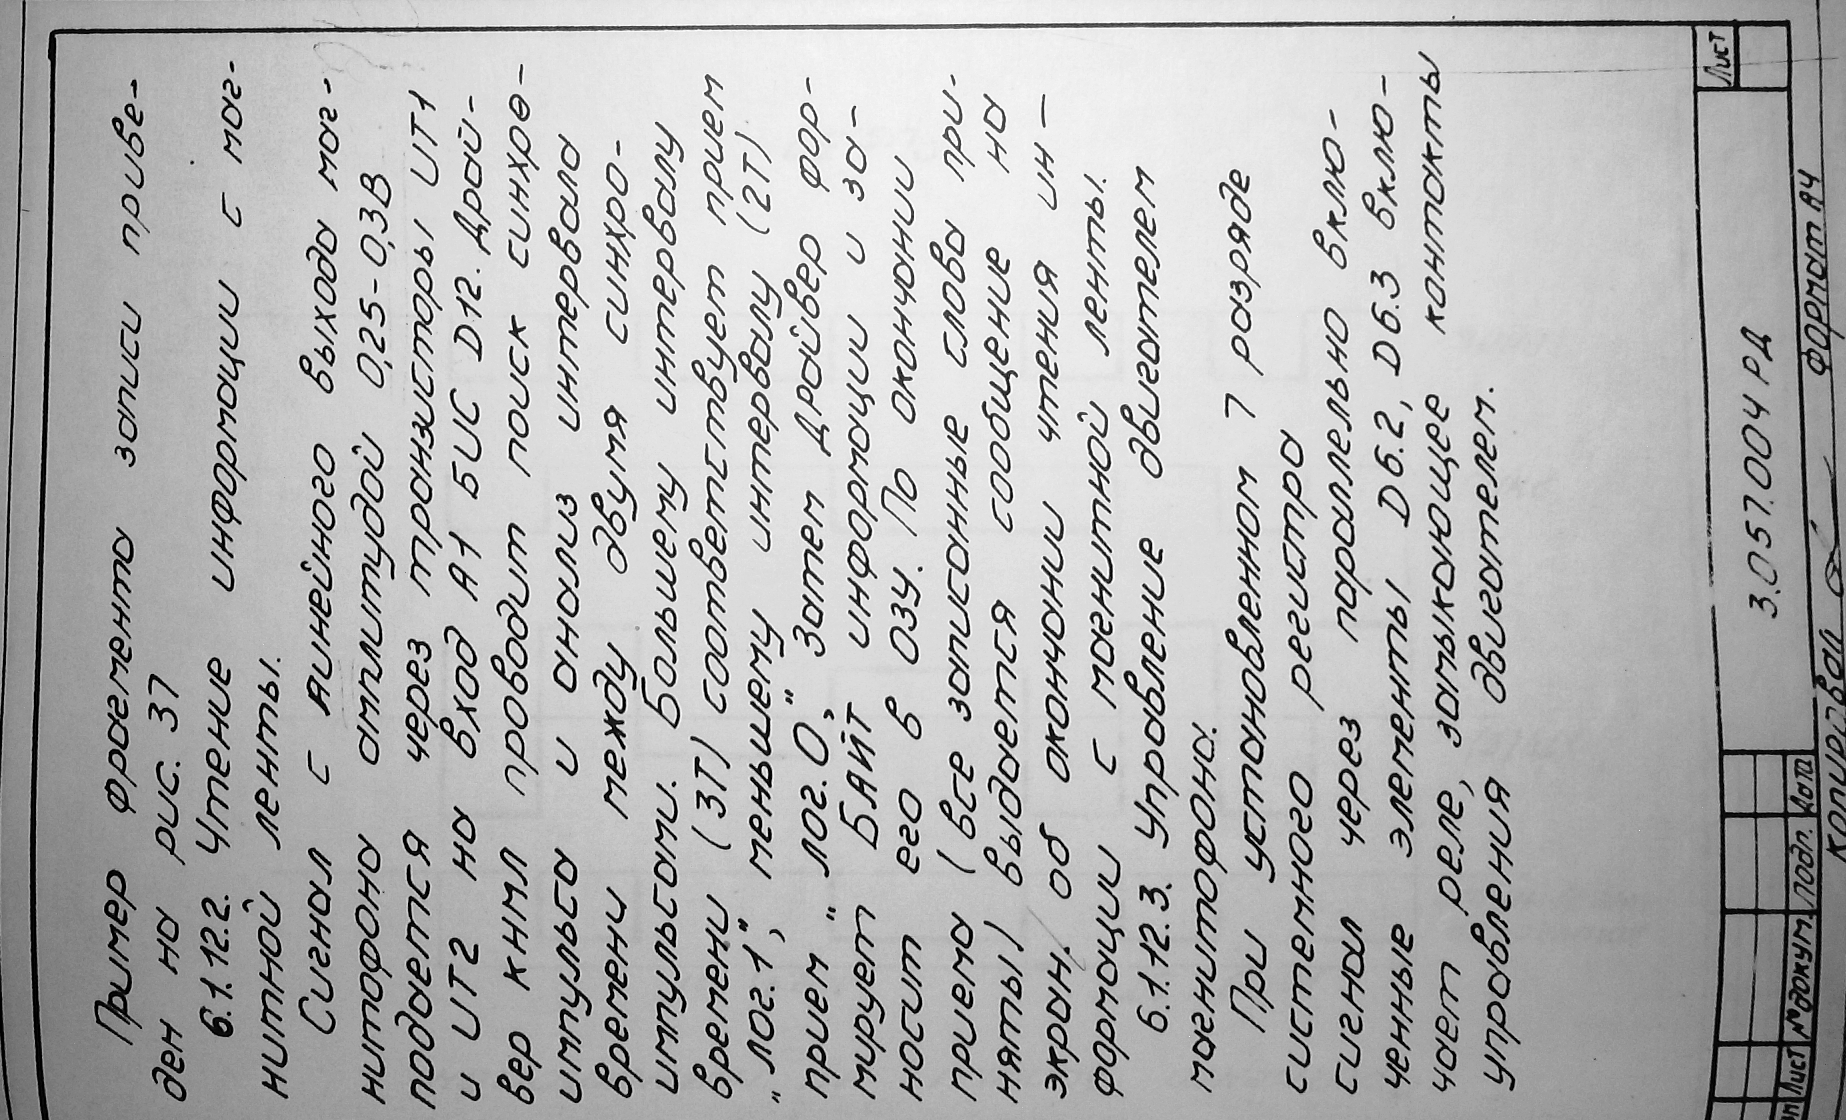 Пример фрагмента записи приве-
ден на рис. 37
6.1.12.2. Чтение информации с маг-
нитной ленты.
Сигнал с линейного выхода маг-
нитофона амплитудой 0,25-0,3В
подается через транзисторы UT1
и UT2 на вход А1 БИС D12. Драй-
вер КНМЛ проводит поиск синхро-
импульса и анализ интервала
времени между двумя синхро-
импульсами. Большему интервалу
времени (3Т) соответствует прием
„лог.1", меньшему интервалу (2Т)
прием „лог.0", Затем драйвер фор-
мирует БАЙТ информации и за-
носит его в ОЗУ. По окончании
приема (все записанные слова при-
няты) выдается сообщение на
экран. об окончании чтения ин-
формации с магнитной ленты.
6.1.12.3. Управление двигателем
магнитофона.
При установленном 7 разряде
системного регистра
сигнал через параллельно вклю-
ченные элементы D6.2, D6.3 вклю-
чает реле, замыкающее контакты
управления двигателем.
Лист № докум. Подп. Дата
3.057.004 РД
Лист
Копировал
Формат А4